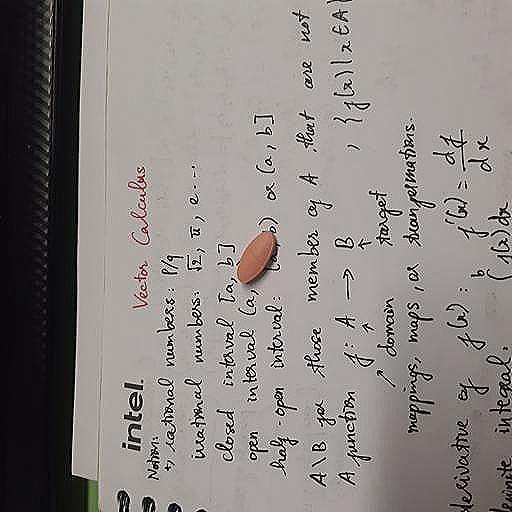 intel.
Vector Calculus
Notion:
↳ rational numbers: P/q
irrational numbers: √2, π, e ...
closed interval [a, b]
open interval (a,
half-open interval: b) or (a, b]
A\B for those member of A that are not
A function f: A → B , {f(x) | x ∈ A}
domain target
mappings, maps, or transformations.
derivative of f(x): f'(x) = df/dx
definite integral: b (x) dx